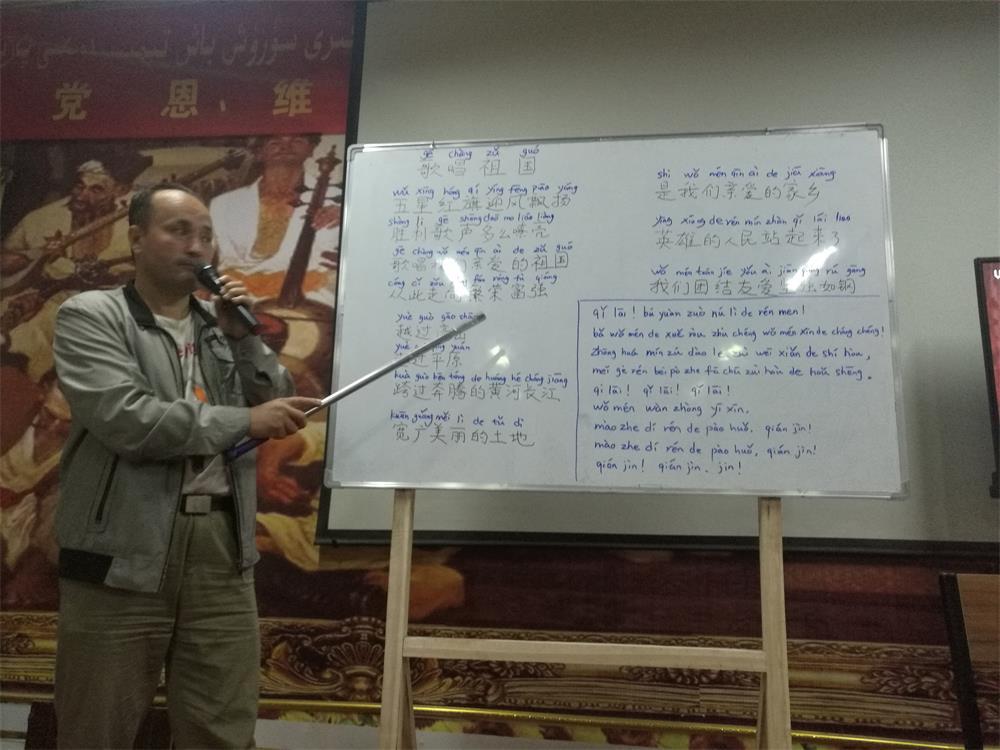 党 恩、维
gē chàng zǔ guó
歌唱祖国
wǔ xīng hóng qí yíng fēng piāo yáng
五星红旗迎风飘扬
shèng lì gē shēng duō mo liáo liàng
胜利歌声多么嘹亮
gē chàng wǒ mén qīn ài de zǔ guó
歌唱我们亲爱的祖国
cóng cǐ zǒu fán róng fù qiáng
从此走向繁荣富强
yuè guò gāo shān
越过高山
yuè píng yuán
过平原
kuà guò bēn téng de huáng hé cháng jiāng
跨过奔腾的黄河长江
kuān guǎng měi lì de tǔ dì
宽广美丽的土地
shì wǒ mén qīn ài de jiā xiāng
是我们亲爱的家乡
yīng xióng de rén mín zhàn qǐ lái liao
英雄的人民站起来了
wǒ mén tuán jié yǒu ài jiān qiáng rú gāng
我们团结友爱坚强如钢
qǐ lái! bú yuàn zuò nú lì de rén men!
bǎ wǒ mén de xuě ròu, zhù chéng wǒ mén xīn de cháng chéng!
zhōng huá mín zú dào le zuì wēi xiǎn de shí hòu,
měi gè rén bèi pò zhe fā chū zuì hòu de hoǔ shēng.
qǐ lái! qǐ lái! qǐ lái!
wǒ mén wàn zhòng yī xīn,
mào zhe dí rén de pào huǒ, qián jìn!
mào zhe dí rén de pào huǒ, qián jìn!
qián jìn! qián jìn. jìn!